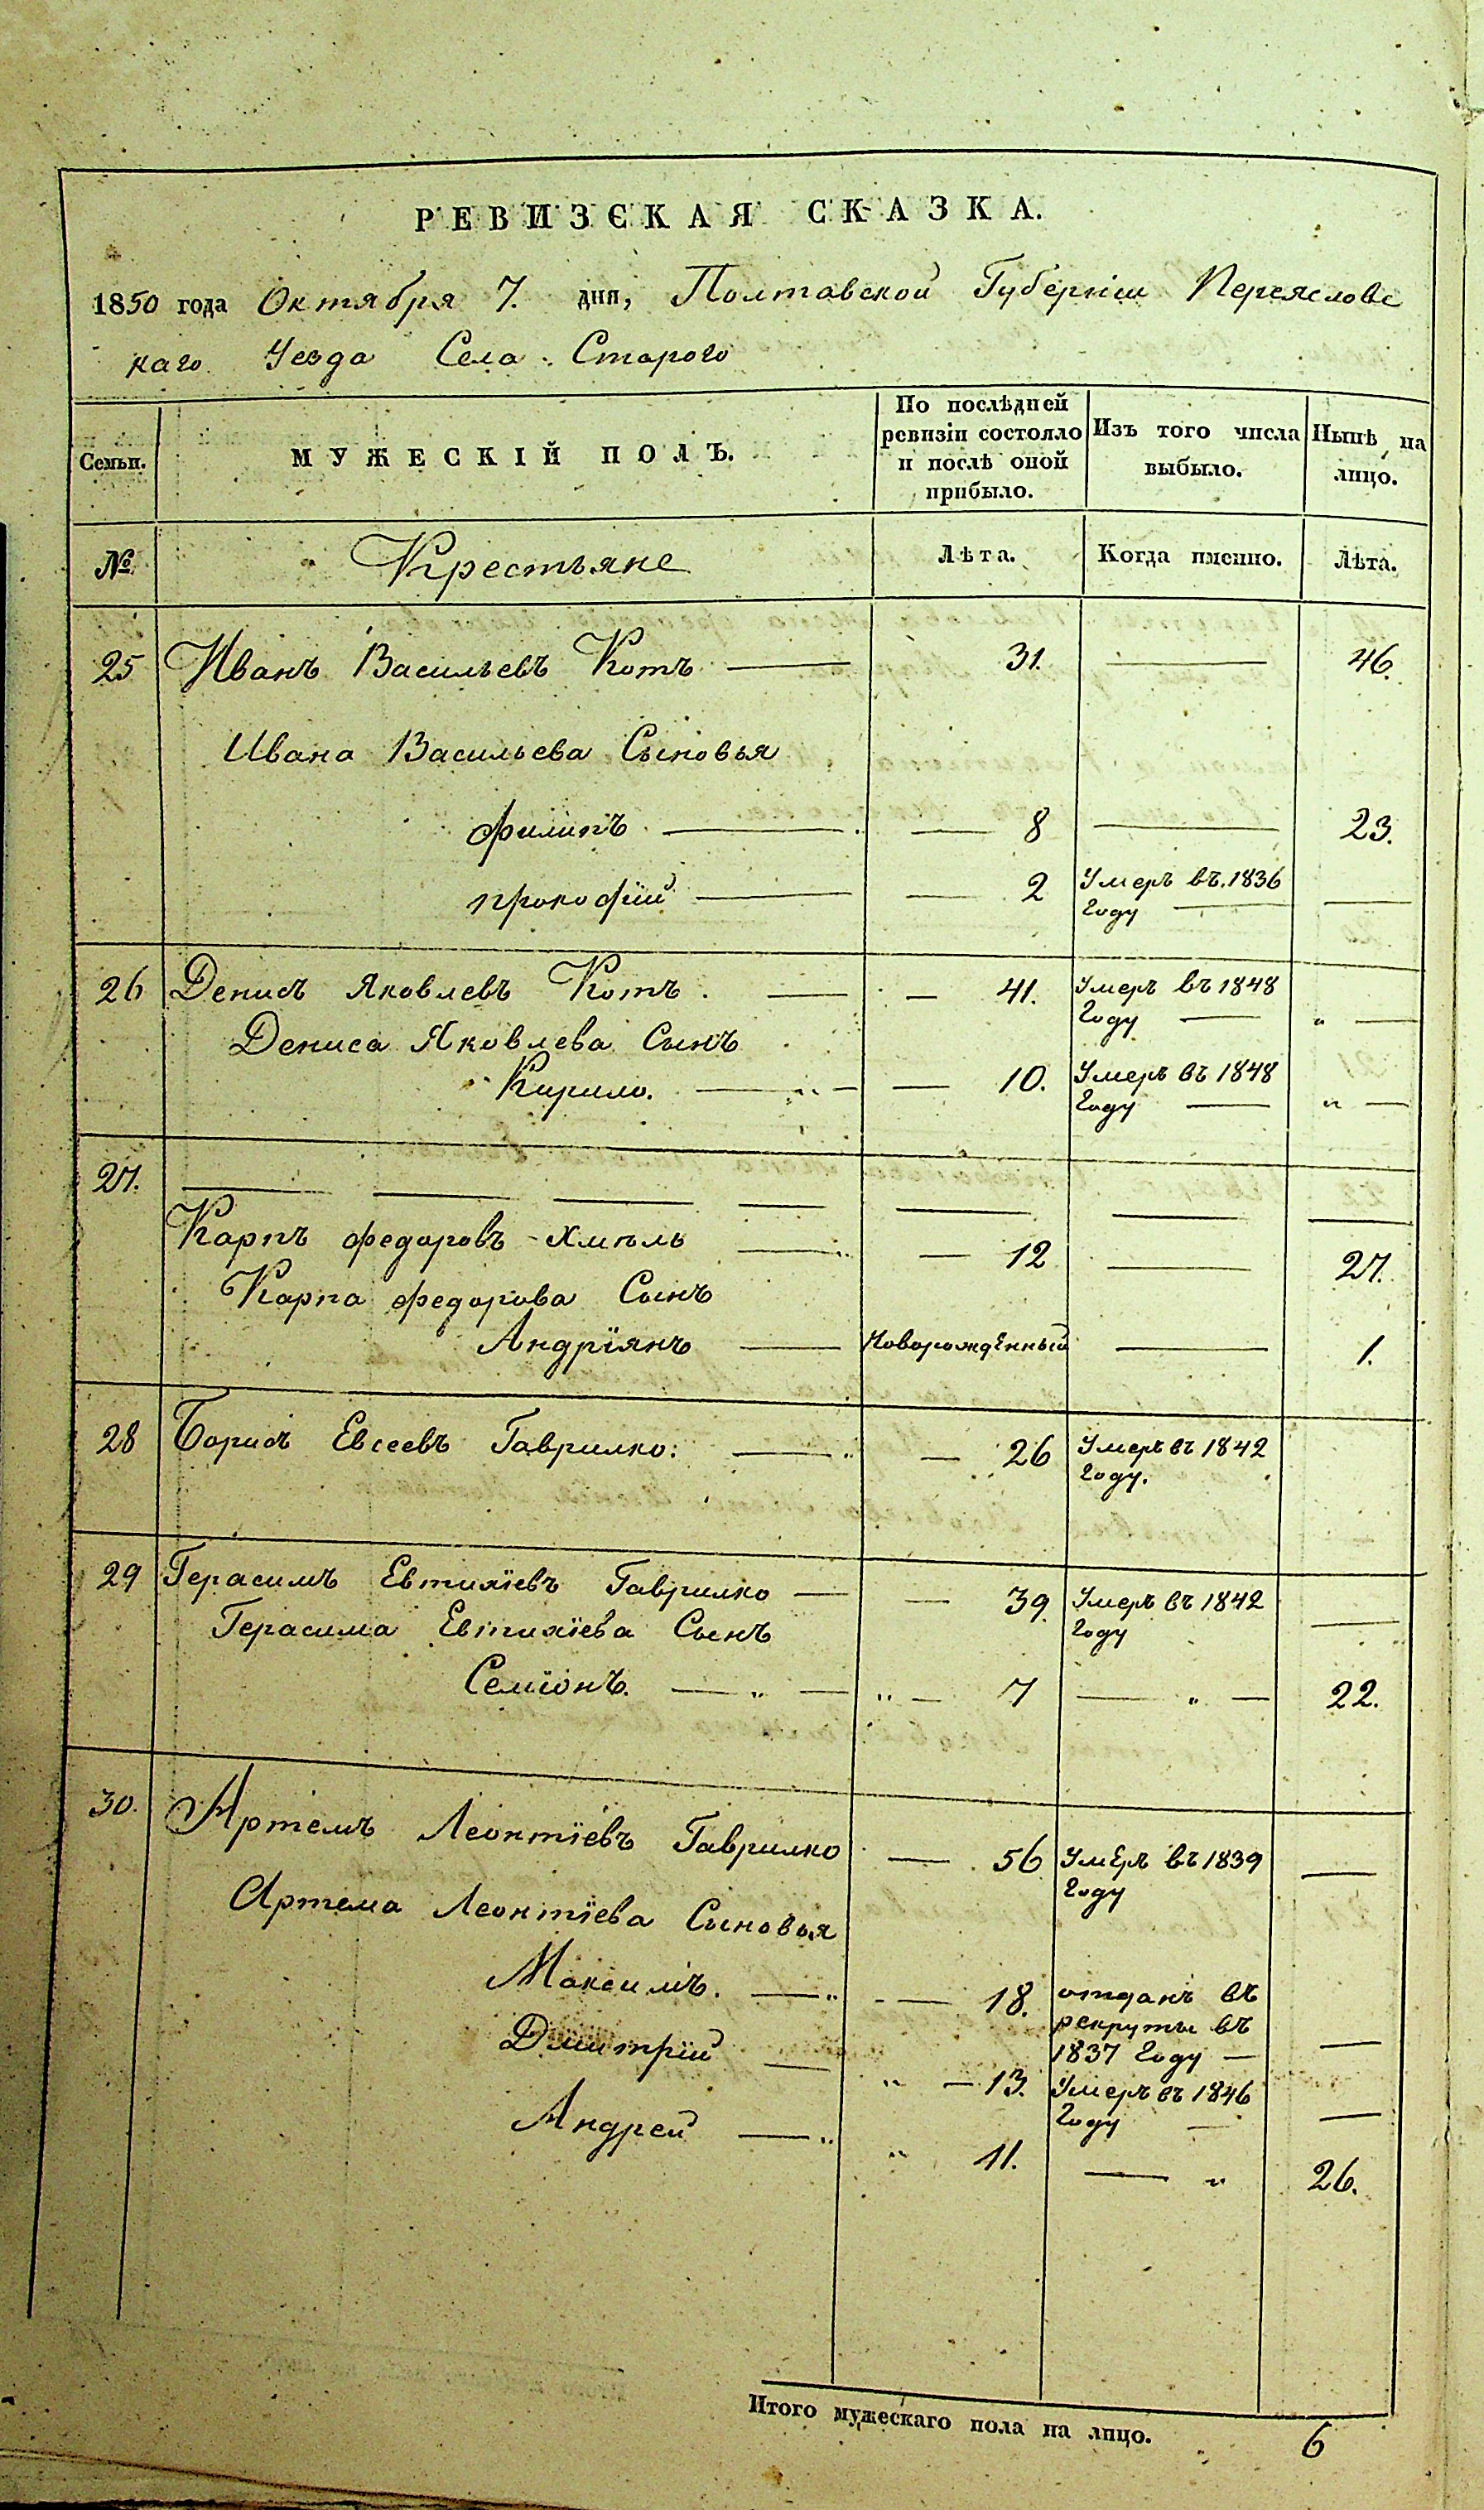 РЕВИЗСКАЯ СКАЗКА.
1850 года Октября 7. дня, Полтавской Губернiи Переяславс
каго Уезда Села Старого
Семьи.
МУЖЕСКIЙ ПОЛЪ.
По послѣдней ревизiи состояло и послѣ оной прибыло.
Изъ того числа выбыло.
Нынѣ на лицо.
№
Крестьяне
Лѣта.
Когда именно.
Лѣта.
25 Иванъ Васильевъ Котъ — 31. — 46.
Ивана Васильева Сыновья
Филипъ — — 8 — 23.
Прокофiй — — 2 Умеръ въ 1836 году — —
26 Денисъ Яковлевъ Котъ. — — 41. Умеръ въ 1848 году — " —
Дениса Яковлева Сынъ
Кирило. — " — — 10. Умеръ въ 1848 году — " —
27. — — — — — — —
Карпъ Федоровъ Хмѣль — " — 12 — 27.
Карпа Федорова Сынъ
Андрiянъ — Новорождённый — 1.
28 Борисъ Евсеевъ Гаврилко: — " — 26 Умеръ въ 1842 году.
29 Герасимъ Евтихiевъ Гаврилко — — 39. Умеръ въ 1842 году —
Герасима Евтихiева Сынъ
Семiонъ. — " — " — 7 — " — 22.
30. Артемъ Леонтiевъ Гаврилко — 56 Умеръ въ 1839 году —
Артема Леонтiева Сыновья
Максимъ. — " - — 18. отданъ въ рекруты въ 1837 году — —
Дмитрiй — " — 13. Умеръ въ 1846 году — —
Андрей — " " 11. — " 26.
Итого мужескаго пола на лицо. 6